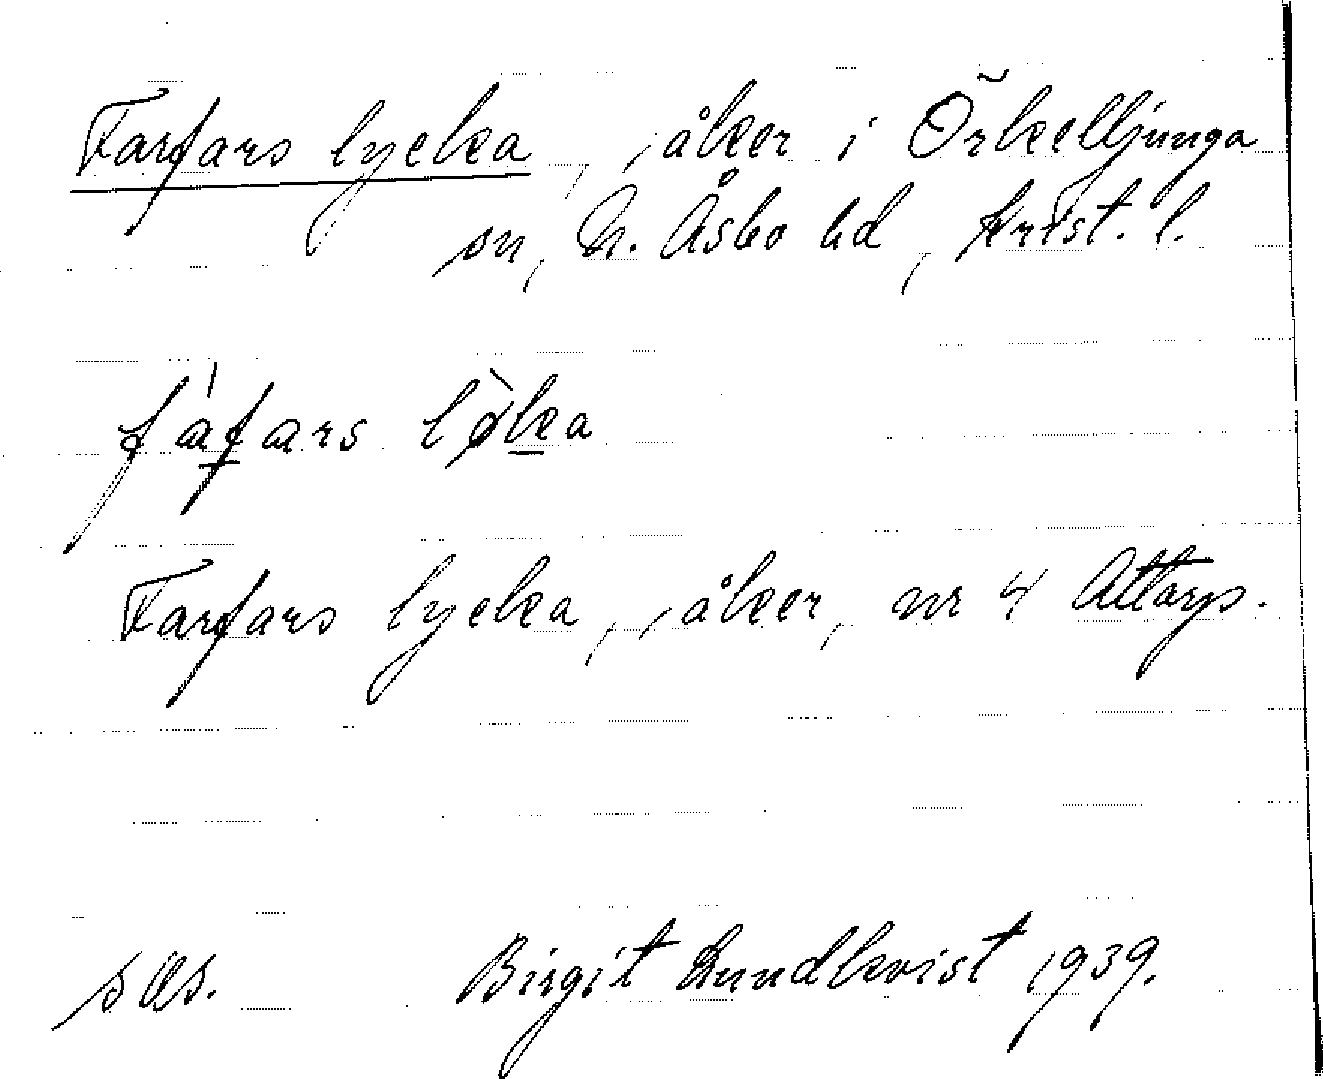 Farfars lycka, åker i Örkelljunga
sn, N. Åsbo hd, Krist. l.
fáfars lø̀ka
Farfars lycka, åker, nr 4 Attarps.
Birgit Lundkvist 1939.